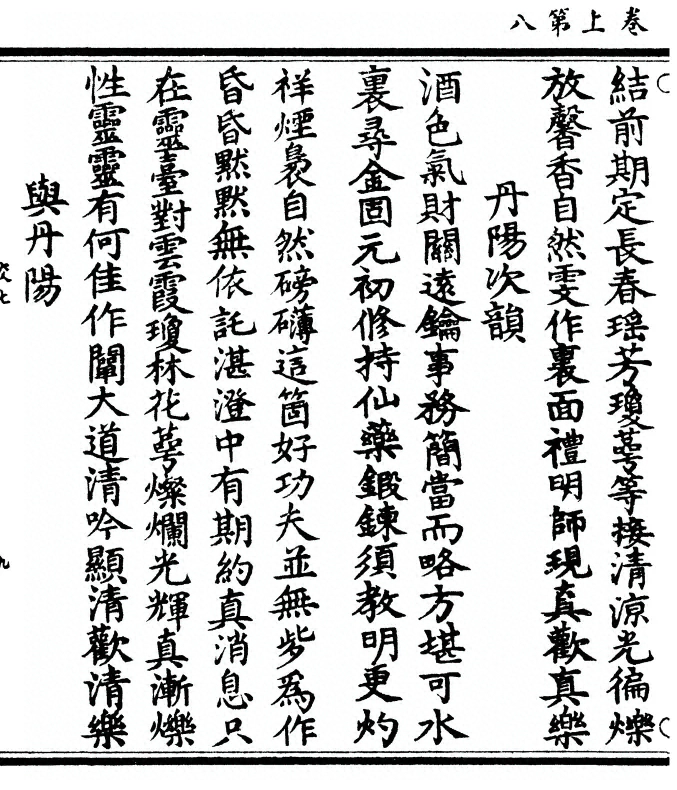 卷上第八
結前期定長春瑶芳瓊蕚等接清涼光徧爍
放馨香自然雯作裏面禮明師現真歡真樂
丹陽次韻
酒色氣財關遠鑰事務簡當而略方堪可水
裏尋金固元初修持仙藥鍛鍊須教明更灼
祥煙裊自然磅礴這箇好功夫並無些爲作
昏昏默默無依託湛澄中有期約真消息只
在靈臺對雲霞瓊林花蕚燦爛光輝真漸爍
性靈靈有何佳作闡大道清吟顯清歡清樂
與丹陽